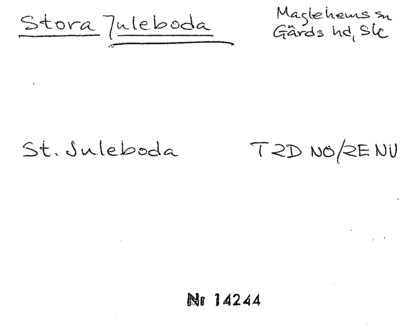 Stora Juleboda
Maglehems sn
Gärds hd, Sk
St. Juleboda
T2D NÖ/2E NV
Nr 14244